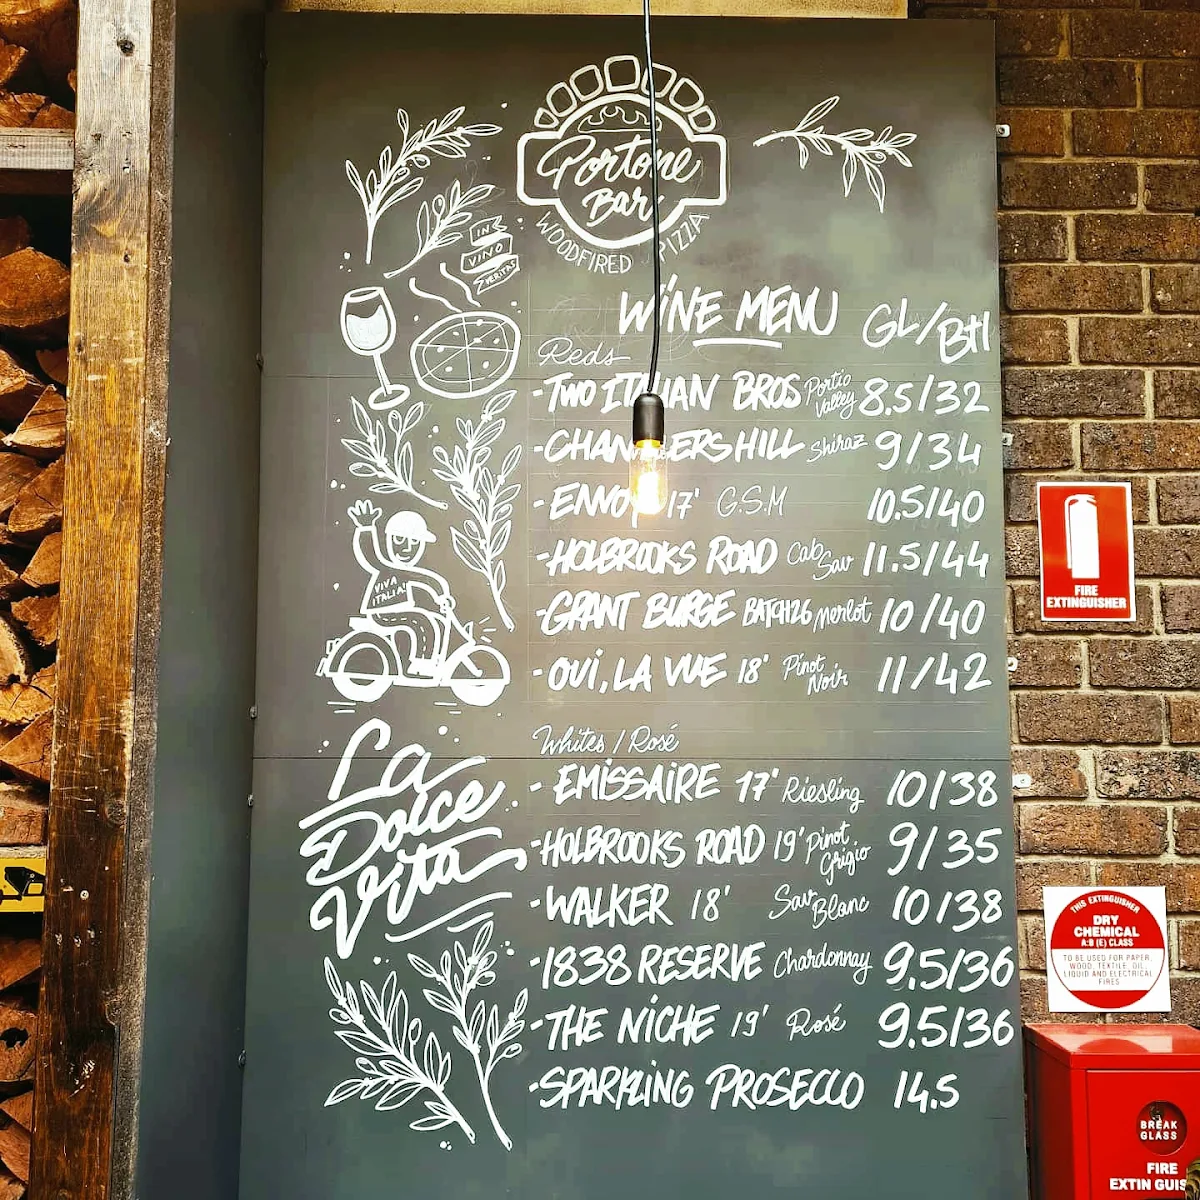 Portone
Bar
WOODFIRED PIZZA
IN
VINO
VERITAS
WINE MENU GL/Btl
Reds
-TWO ITALIAN BROS Portio Valley 8.5/32
-CHAMBERS HILL Shiraz 9/34
-ENVOY 17' G.S.M 10.5/40
-HOLBROOKS ROAD Cab Sav 11.5/44
-GRANT BURGE BATCH26 Merlot 10/40
-OUI, LA VUE 18' Pinot Noir 11/42
VIVA
ITALIA
Whites / Rosé
- EMISSAIRE 17' Riesling 10/38
-HOLBROOKS ROAD 19' Pinot Grigio 9/35
-WALKER 18' Sav Blanc 10/38
-1838 RESERVE Chardonnay 9.5/36
-THE NICHE 19' Rosé 9.5/36
-SPARKLING PROSECCO 14.5
La
Dolce
Vita
FIRE
EXTINGUISHER
THIS EXTINGUISHER
DRY
CHEMICAL
A:B (E) CLASS
TO BE USED FOR PAPER,
WOOD, TEXTILE, OIL,
LIQUID AND ELECTRICAL
FIRES
BREAK
GLASS
FIRE
EXTINGUIS